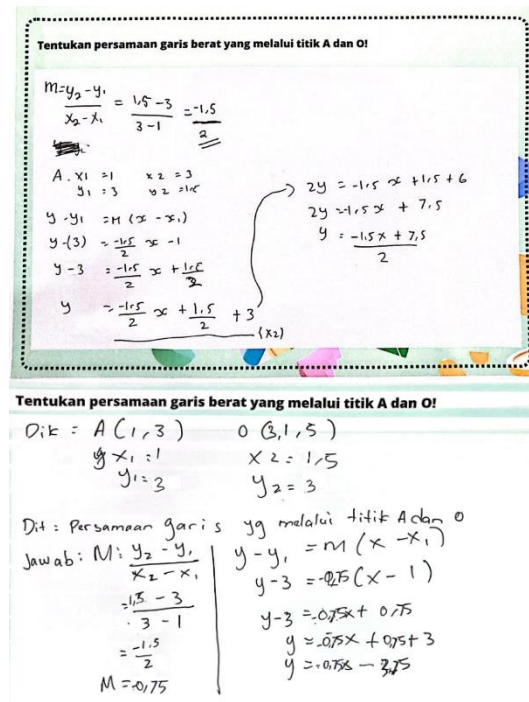 Tentukan persamaan garis berat yang melalui titik A dan O!
M = y₂ - y₁ / x₂ - x₁ = 1,5 - 3 / 3 - 1 = -1,5 / 2
A. x1 = 1 x2 = 3
y1 = 3 y2 = 1,5
y - y1 = M (x - x₁)
y - (3) = -1,5/2 x - 1
y - 3 = -1,5/2 x + 1,5/2
y = -1,5/2 x + 1,5/2 + 3
(x2)
2y = -1,5 x + 1,5 + 6
2y = -1,5 x + 7,5
y = -1,5x + 7,5 / 2
Tentukan persamaan garis berat yang melalui titik A dan O!
Dik = A (1,3) O (3,1,5)
x₁ = 1 x2 = 1,5
y₁ = 3 y2 = 3
Dit : Persamaan garis yg melalui titik A dan O
Jawab : M : y₂ - y₁ / x₂ - x₁
= 1,5 - 3 / 3 - 1
= -1,5 / 2
M = -0,75
y - y₁ = m (x - x₁)
y - 3 = -0,75 (x - 1)
y - 3 = -0,75x + 0,75
y = -0,75x + 0,75 + 3
y = -0,75x - 3,75